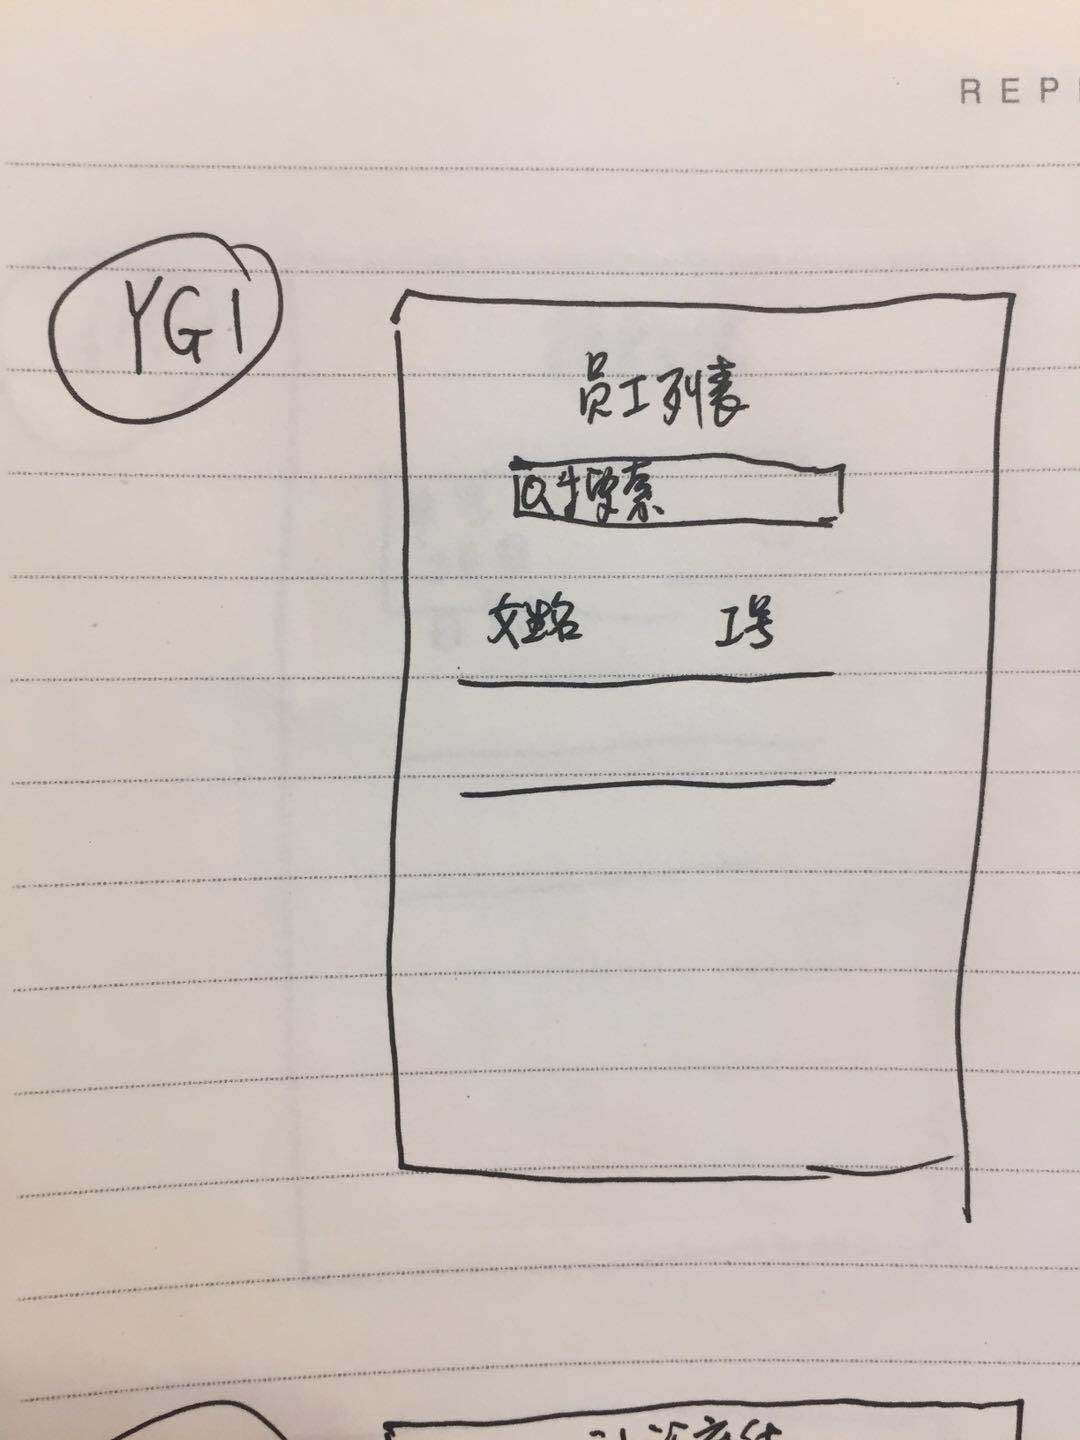 REP
YG1
员工列表
搜索
姓名 工号